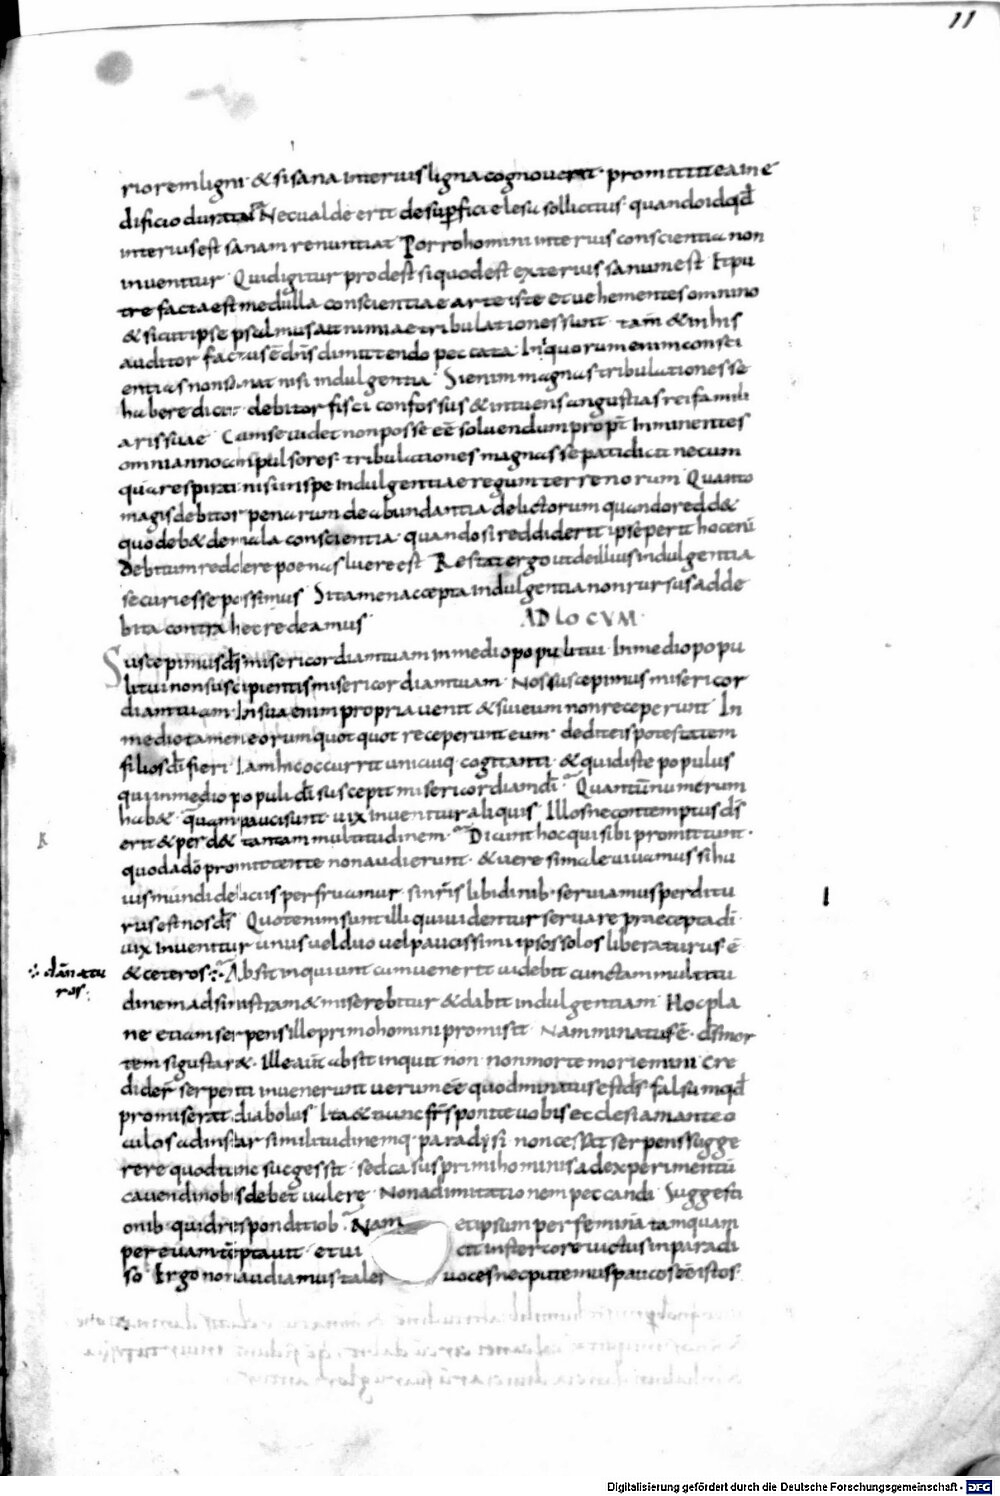 11
rioremligni · & sisana interius ligna cognoverit · promittit eaine
dificio duratura Nec valde erit desupficie lesa sollicitus · quandoidqđ
interius est sanam renuntiat Porro homini interius conscientia non
invenitur Quid igitur prodest si quod est exterius sanum est Et pu
tre facta est medulla conscientiae arte iste et vehementes omnino
& sicut ipse psalmus ait nimiae tribulationes sunt · tam & in his
auditor factus ē dñs dimittendo peccata · In quorum enim consci
entias non sonat nisi indulgentia · Si enim magnas tribulationes se
habere dicit debitor fisci confossus & intuens angustias rei famili
aris suae Cum se videt non posse eē solvendum propt Imminentes
omni anno compulsores · tribulationes magnas se pati dicit nec um
qua respirat nisi in spe Indulgentiae regum terrenorum Quanto
magis debitor penarum de abundantia delictorum quando redd&
quod deb& de mala conscientia · quando si reddiderit ipse perit hoc eni
Debitum reddere poenas luere est Restat ergo ut de illius indulgentia
securi esse possimus Si tamen accepta indulgentia non rursus adde
bita contrahe redeamus AD LOCVM
Suscepimus dš misericordiam tuam in medio populi tui · In medio popu
li tui non suscipientis misericordiam tuam · Nos suscepimus misericor
diam tuam · In sua enim propria venit & sui eum non receperunt In
medio tamen eorum quot quot receperunt eum · dedit eis potestatem
filios dī fieri Iam hic occurrit unicuiq cogitanti · & qui diste populus
qui in medio populi dī suscepit misericordiam dī · Quantū numerum
hab& · quam pauci sunt · vix invenitur aliquis Illos ne contemptus dš
erit & perd& tantam multitudinem · Dicunt hoc qui sibi promittunt ·
quod a dō promittente non audierunt · & vere si male vivamus si hu
ius mundi deliciis perfruamur · si nr̄is libidinib · serviamus perditu
rus est nos dš Quot enim sunt illi qui videntur servare praecepta dī ·
vix invenitur unus vel duo vel paucissimi ipsos solos liberaturus ē
dānatu
ros
& ceteros Absit inquiunt cum venerit viderit cunctam multitu
dinem ad sinistram & miserebitur & dabit indulgentiam Hoc pla
ne etiam serpens ille primo homini promisit Nam minatus ē · dš mor
tem si gustar& · Ille aūt absit inquit non · non morte moriemini Cre
dider̄ serpenti invenerunt verum eē quod minatus est dš falsum qđ
promiserat diabolus Ita & nunc fr̄s ponite vobis ecclesiam ante o
culos ad instar similitudinemq · paradysi non cessat serpens sugge
rere quod tunc suggessit · sed casus primi hominis ad experimentū
cavendi nobis debet valere Non ad imitationem peccandi Suggesti
onib · quid responditiob · Nam et ipsum per feminā tamquam
per evam tēptavit et vi cit in stercore victus in paradi
so Ergo non audiamus tales voces nec putemus paucos eē istos
Digitalisierung gefördert durch die Deutsche Forschungsgemeinschaft - DFG